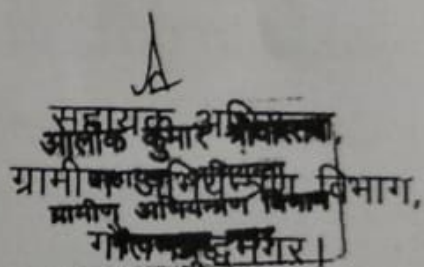 सहायक
आलोक कुमार श्रीवास्तव,
ग्रामीण अभियन्त्रण विभाग,
ग्रामीण अभियन्त्रण विभाग
गौतमबुद्धनगर।